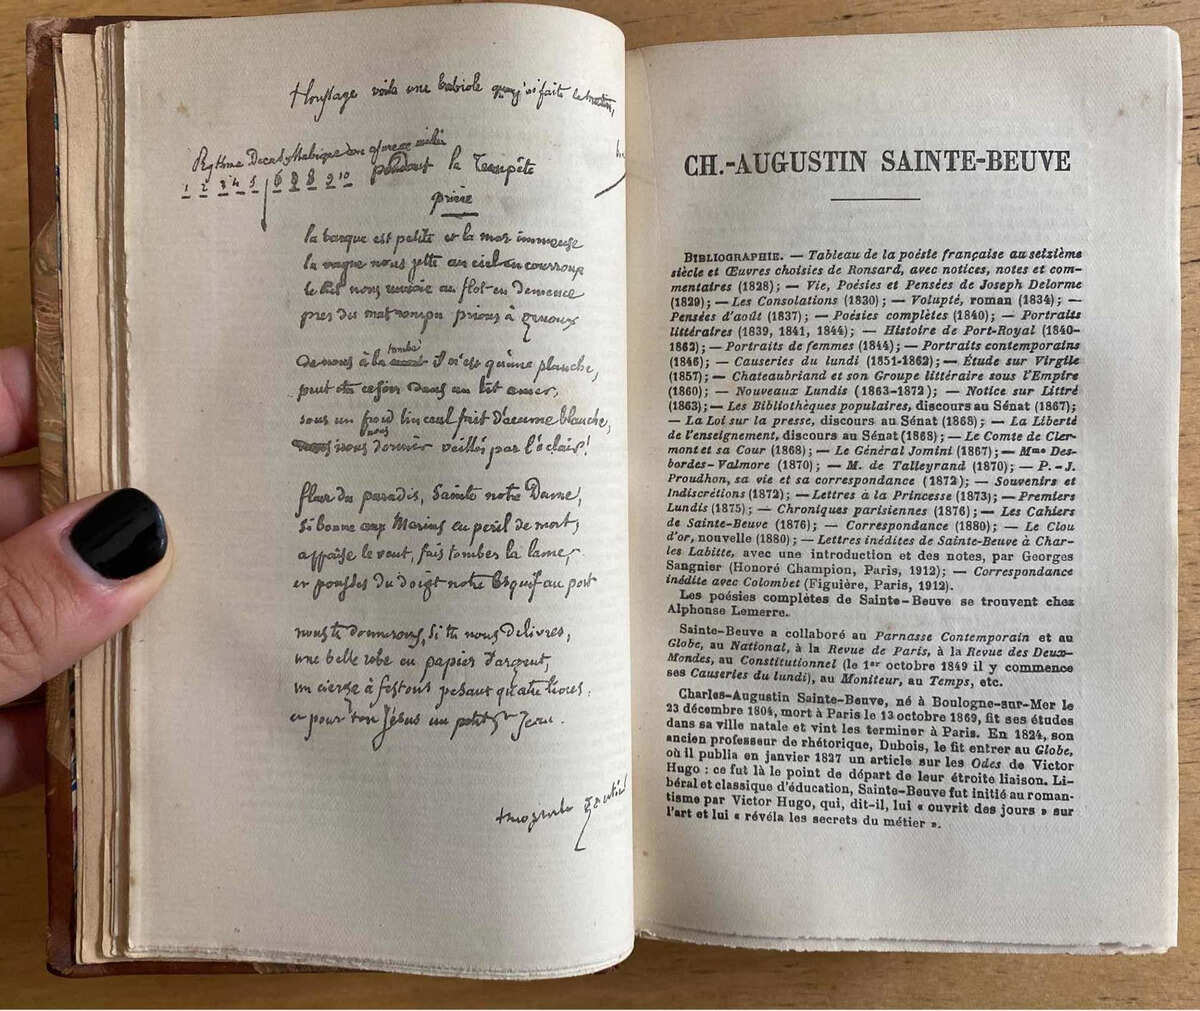 Houssaye voila une babiole que j'ai faite le matin,
Rythme Decasyllabique
1 2 3 4 5 6 7 8 9 10 pendant la Tempête
prière
la barque est petite et la mer immense
la vague nous jette au ciel en courroux
le ciel nous renvoie au flot en demence
pres du mat rompu prions à genoux
De nous à la tombe il n'est qu'une planche,
peut etre ce soir dans un lit amer,
sous un froid linceul fait d'ecume blanche,
irons nous dormir veillés par l'éclair!
fleur du paradis, Sainte notre Dame,
Si bonne aux Marins en peril de mort,
appaise le vent, fais tomber la lame,
et pousses du doigt notre Esquif au port
nous te donnerons, si tu nous delivres,
une belle robe en papier d'argent,
un cierge à festons pesant quatre livres.
et pour ton Jésus un petit St Jean.
theophile Gautier
CH.-AUGUSTIN SAINTE-BEUVE
BIBLIOGRAPHIE. — Tableau de la poésie française au seizième
siècle et Œuvres choisies de Ronsard, avec notices, notes et com-
mentaires (1828); — Vie, Poésies et Pensées de Joseph Delorme
(1829); — Les Consolations (1830); — Volupté, roman (1834); —
Pensées d'août (1837); — Poésies complètes (1840); — Portraits
littéraires (1839, 1841, 1844); — Histoire de Port-Royal (1840-
1862); — Portraits de femmes (1844); — Portraits contemporains
(1846); — Causeries du lundi (1851-1862); — Étude sur Virgile
(1857); — Chateaubriand et son Groupe littéraire sous l'Empire
(1860); — Nouveaux Lundis (1863-1872); — Notice sur Littré
(1863); — Les Bibliothèques populaires, discours au Sénat (1867);
— La Loi sur la presse, discours au Sénat (1868); — La Liberté
de l'enseignement, discours au Sénat (1868); — Le Comte de Cler-
mont et sa Cour (1868); — Le Général Jomini (1867); — Mme Des-
bordes-Valmore (1870); — M. de Talleyrand (1870); — P.-J.
Proudhon, sa vie et sa correspondance (1872); — Souvenirs et
Indiscrétions (1872); — Lettres à la Princesse (1873); — Premiers
Lundis (1875); — Chroniques parisiennes (1876); — Les Cahiers
de Sainte-Beuve (1876); — Correspondance (1880); — Le Clou
d'or, nouvelle (1880); — Lettres inédites de Sainte-Beuve à Char-
les Labitte, avec une introduction et des notes, par Georges
Sangnier (Honoré Champion, Paris, 1912); — Correspondance
inédite avec Colombet (Figuière, Paris, 1912).
Les poésies complètes de Sainte-Beuve se trouvent chez
Alphonse Lemerre.
Sainte-Beuve a collaboré au Parnasse Contemporain et au
Globe, au National, à la Revue de Paris, à la Revue des Deux-
Mondes, au Constitutionnel (le 1er octobre 1849 il y commence
ses Causeries du lundi), au Moniteur, au Temps, etc.
Charles-Augustin Sainte-Beuve, né à Boulogne-sur-Mer le
23 décembre 1804, mort à Paris le 13 octobre 1869, fit ses études
dans sa ville natale et vint les terminer à Paris. En 1824, son
ancien professeur de rhétorique, Dubois, le fit entrer au Globe,
où il publia en janvier 1827 un article sur les Odes de Victor
Hugo : ce fut là le point de départ de leur étroite liaison. Li-
béral et classique d'éducation, Sainte-Beuve fut initié au roman-
tisme par Victor Hugo, qui, dit-il, lui « ouvrit des jours » sur
l'art et lui « révéla les secrets du métier ».